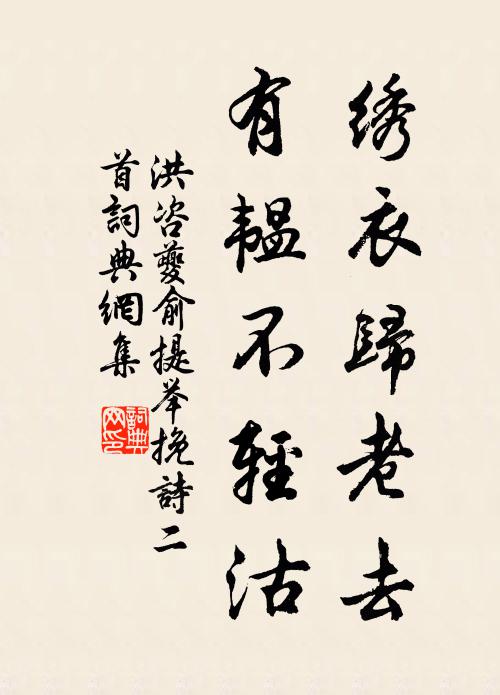 绣衣歸老去
有韞不輕沽
洪咨夔俞提举挽詩二
首詞典網集
詞典网印